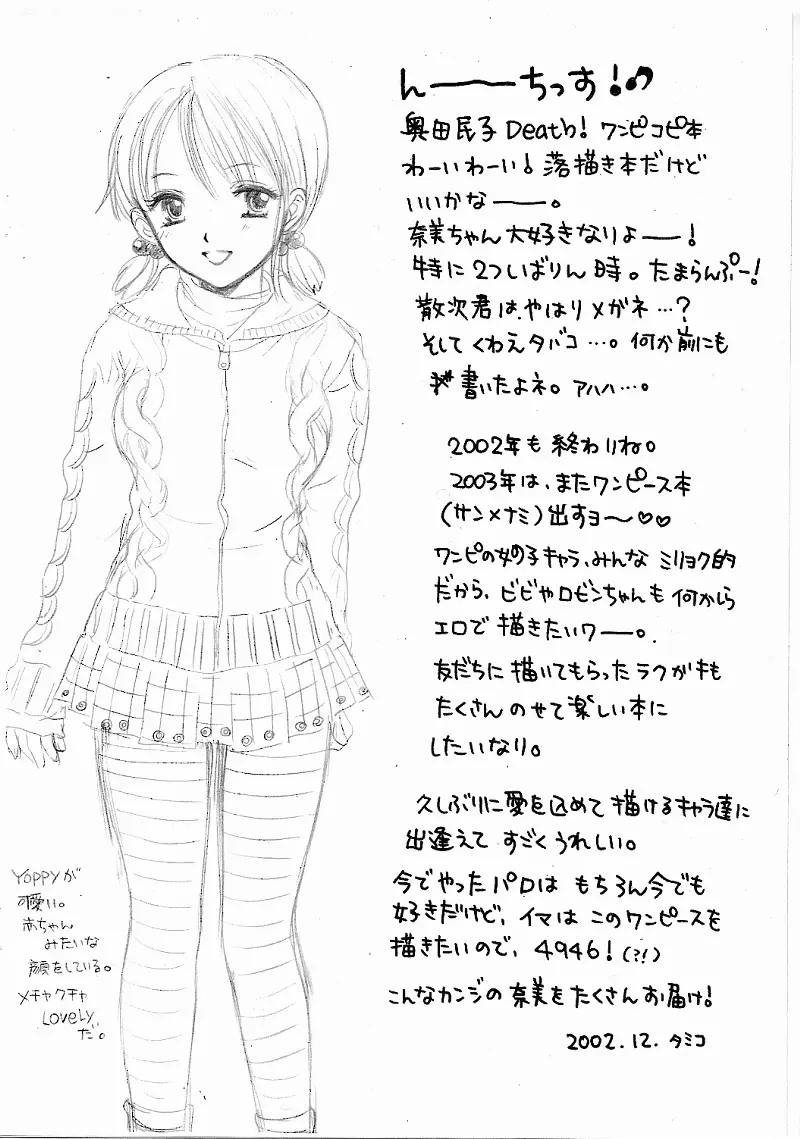 ん━━ちっす!♪
奥田民子 Death! ワンピコピ本
わーいわーい! 落描き本だけど
いいかなーー。
奈美ちゃん大好きなりよーー!
特に2ついばりん時。たまらんぷー!
散次君は、やはりメガネ…?
そしてくわえタバコ…。何か前にも
書いたよネ。アハハ…。
2002年も終わりね。
2003年は、またワンピース本
(サン×ナミ)出すヨ〜♡♡
ワンピの女の子キャラ、みんなミリョク的
だから、ビビやロビンちゃんも何かしら
エロで描きたいワーー。
友だちに描いてもらったラクガキも
たくさんのせて楽しい本に
したいなり。
久しぶりに愛を込めて描けるキャラ達に
出逢えてすごくうれしい。
今でやったパロはもちろん今でも
好きだけど、イマはこのワンピースを
描きたいので、4946!(?!)
こんなカンジの奈美をたくさんお届け!
2002.12. タミコ
YOPPYが
可愛い。
赤ちゃん
みたいな
顔をしている。
メチャクチャ
LOVELY
だ。